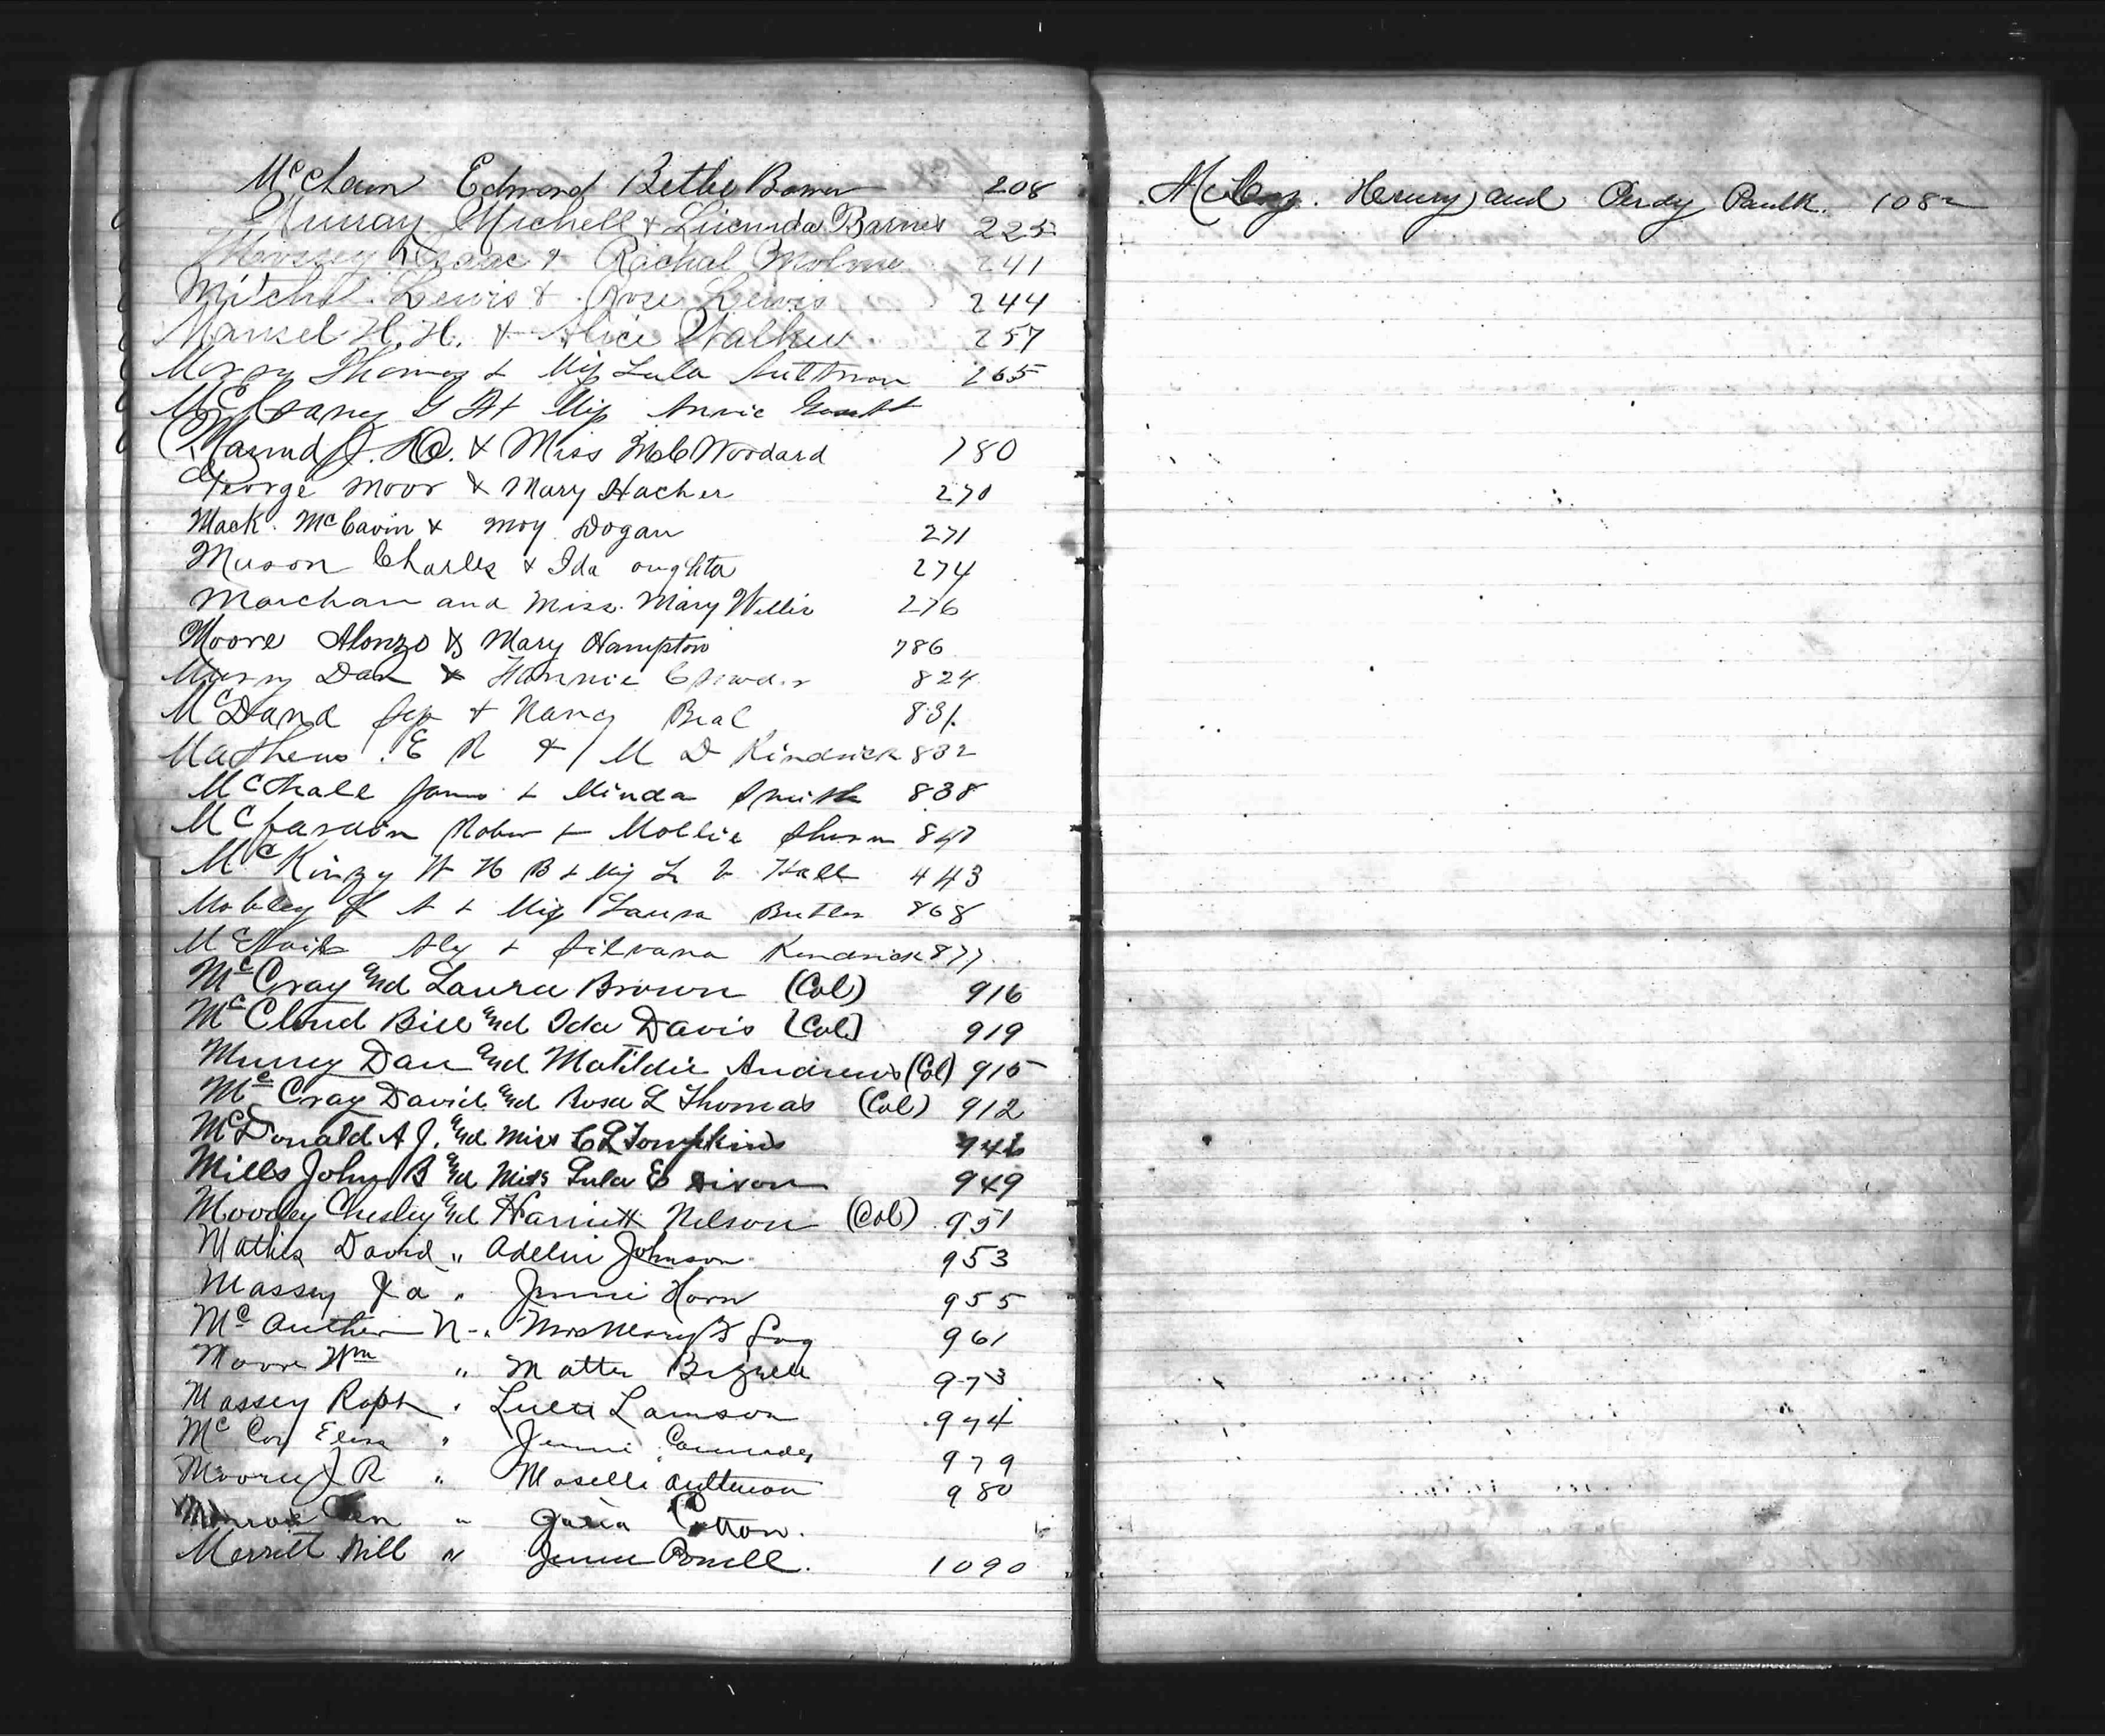 McClain Edmond Bettie Bower 208
Murray Michell & Lucinda Barnes 225
Isaac & Rachal 241
Mitchel Lewis & Rose Lewis 244
Mansel H. H. & Alice Walker 257
Thomas & Miss Lula 265
G A & Miss Annie
& Miss Woodard 780
George Moor & Mary Hacher 270
Mack. McCavin & Moy Dogan 271
Muson Charles & Ida oughta 274
Marchan and Miss. Mary Willis 276
Moore Alonzo & Mary Hampton 786
Murry Dan & Fannie 824
McDand & Nancy Beal 831
Mathews E R & M D Kindrick 832
McThall James & Minda Smith 838
Rober & Mollie 847
McKinzy W H B & Miss L V Hall 443
Mobley A & Miss Laura Butler 868
& Silvana Kendrick 877
McCray and Laura Brown (Col) 916
McCloud Bill and Ida Davis (Col) 919
Murry Dan and Matildie Andrews (Col) 915
McCray David and Rosa L Thomas (Col) 912
McDonald A J. and Miss C L Tompkins 946
Mills John B and Miss Lula E Dixon 949
Moodey Chesley and Harriett Nelson (Col) 951
Mathis David " Adeline Johnson 953
Massey J a " Jennie Horn 955
McAuther N " Miss Mary 961
Moore Wm " Matter Bizzell 973
Massey Roph " Lula Lamson 974
McCoy " Jennie 979
Moore J R " Moselle 980
Monroe " Cotton.
Merritt Will " Jennie Powell. 1090
Henry and Perdy Paulk. 1082